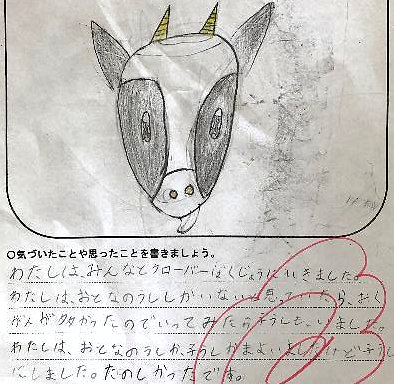 ○気づいたことや思ったことを書きましょう。
わたしは、みんなとクローバーぼくじょうにいきました。
わたしは、おとなのうししかいないと思っていたら、おく
が人が多かったのでいってみたら子うしも、いました。
わたしは、おとなのうしか、子うしかまよいましたけど子うし
にしました。たのしかったです。